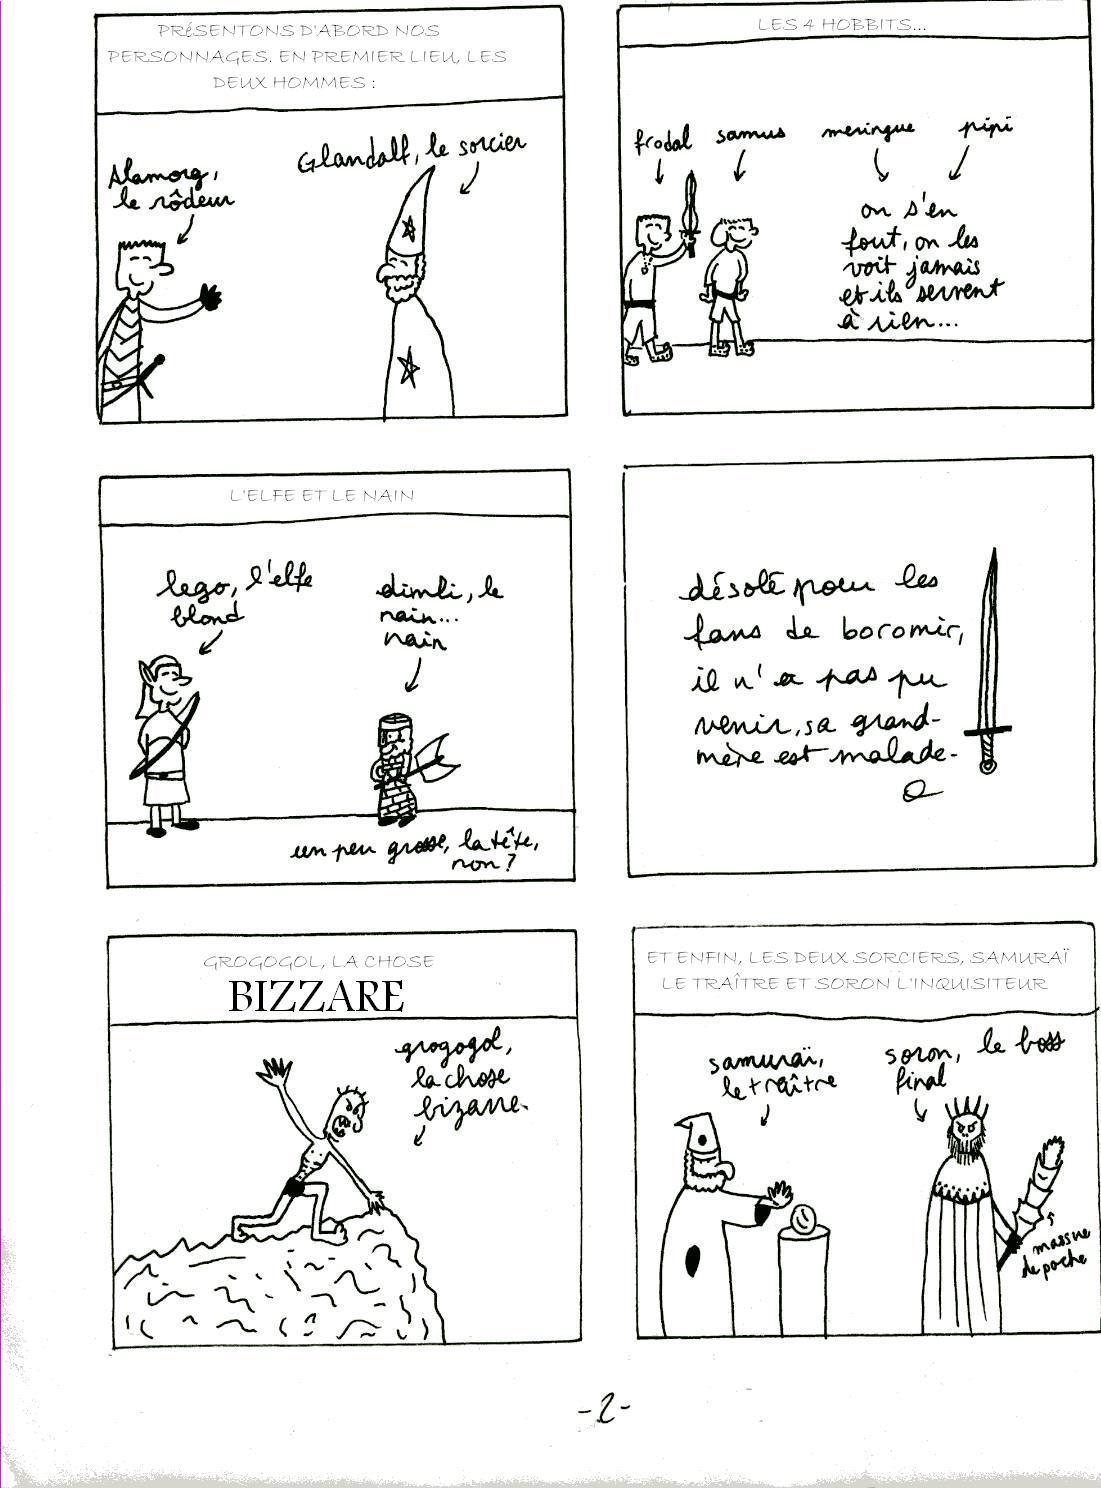 PRéSENTONS D'ABORD NOS
PERSONNAGES. EN PREMIER LIEU, LES
DEUX HOMMES :
Alamorg,
le rôdeur
Glandalf, le sorcier
LES 4 HOBBITS...
frodal
samus
meringue
pipi
on s'en
fout, on les
voit jamais
et ils servent
à rien...
L'ELFE ET LE NAIN
lego, l'elfe
blond
dimli, le
nain...
nain
un peu grosse, la tête,
non ?
désolé pour les
fans de boromir,
il n'a pas pu
venir, sa grand-
mère est malade.
GROGOGOL, LA CHOSE
BIZZARE
grogogol,
la chose
bizarre.
ET ENFIN, LES DEUX SORCIERS, SAMURAÏ
LE TRAÎTRE ET SORON L'INQUISITEUR
samuraï,
le traître
soron, le boss
final
massue
de poche
-2-